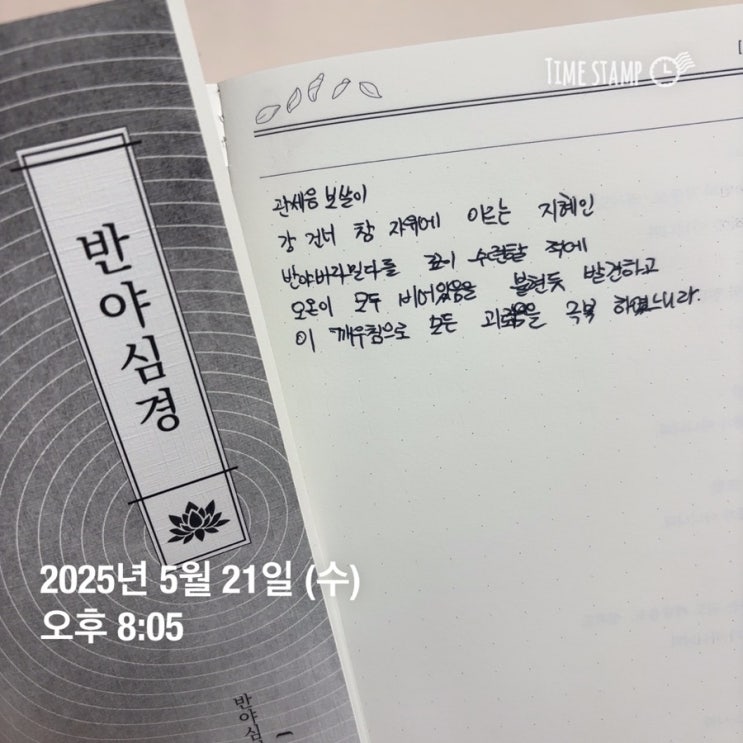 TIME STAMP
반야심경
관세음 보살이
강 건너 참 자유에 이르는 지혜인
반야바라밀다를 깊이 수련할 적에
오온이 모두 비어있음을 불현듯 발견하고
이 깨우침으로 모든 괴로움을 극복 하였느니라.
2025년 5월 21일 (수)
오후 8:05
반야심